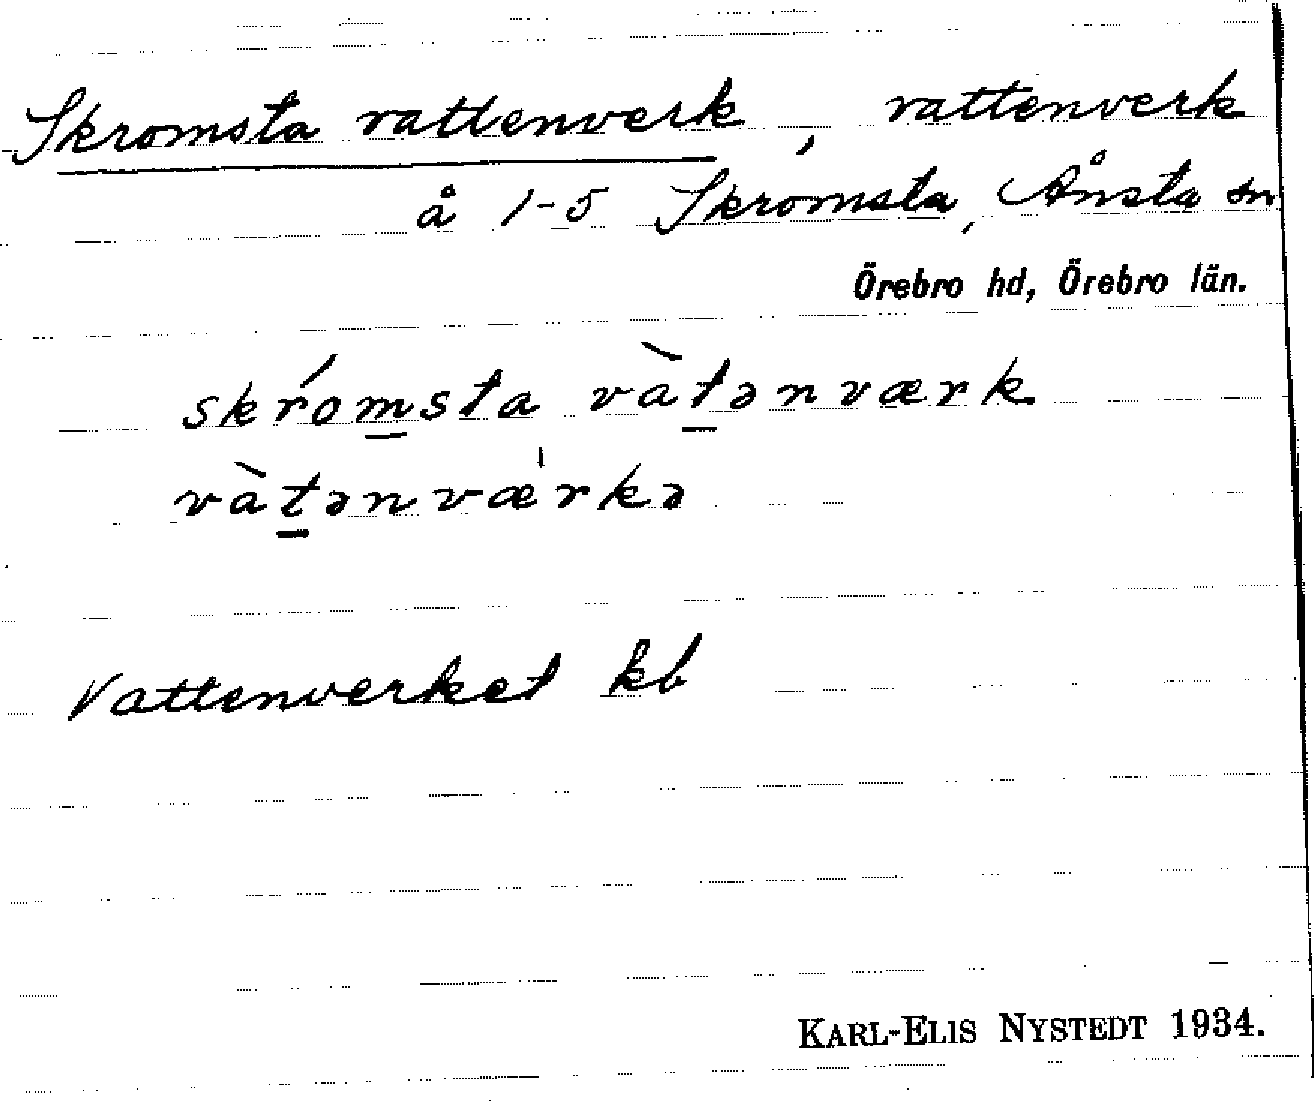 Skromsta vattenverk, vattenverk
å 1-5 Skromsta, Ånsta sn
Örebro hd, Örebro län.
skrómsta vàtənværk
vàtənværkə
Vattenverket kb
KARL-ELIS NYSTEDT 1934.